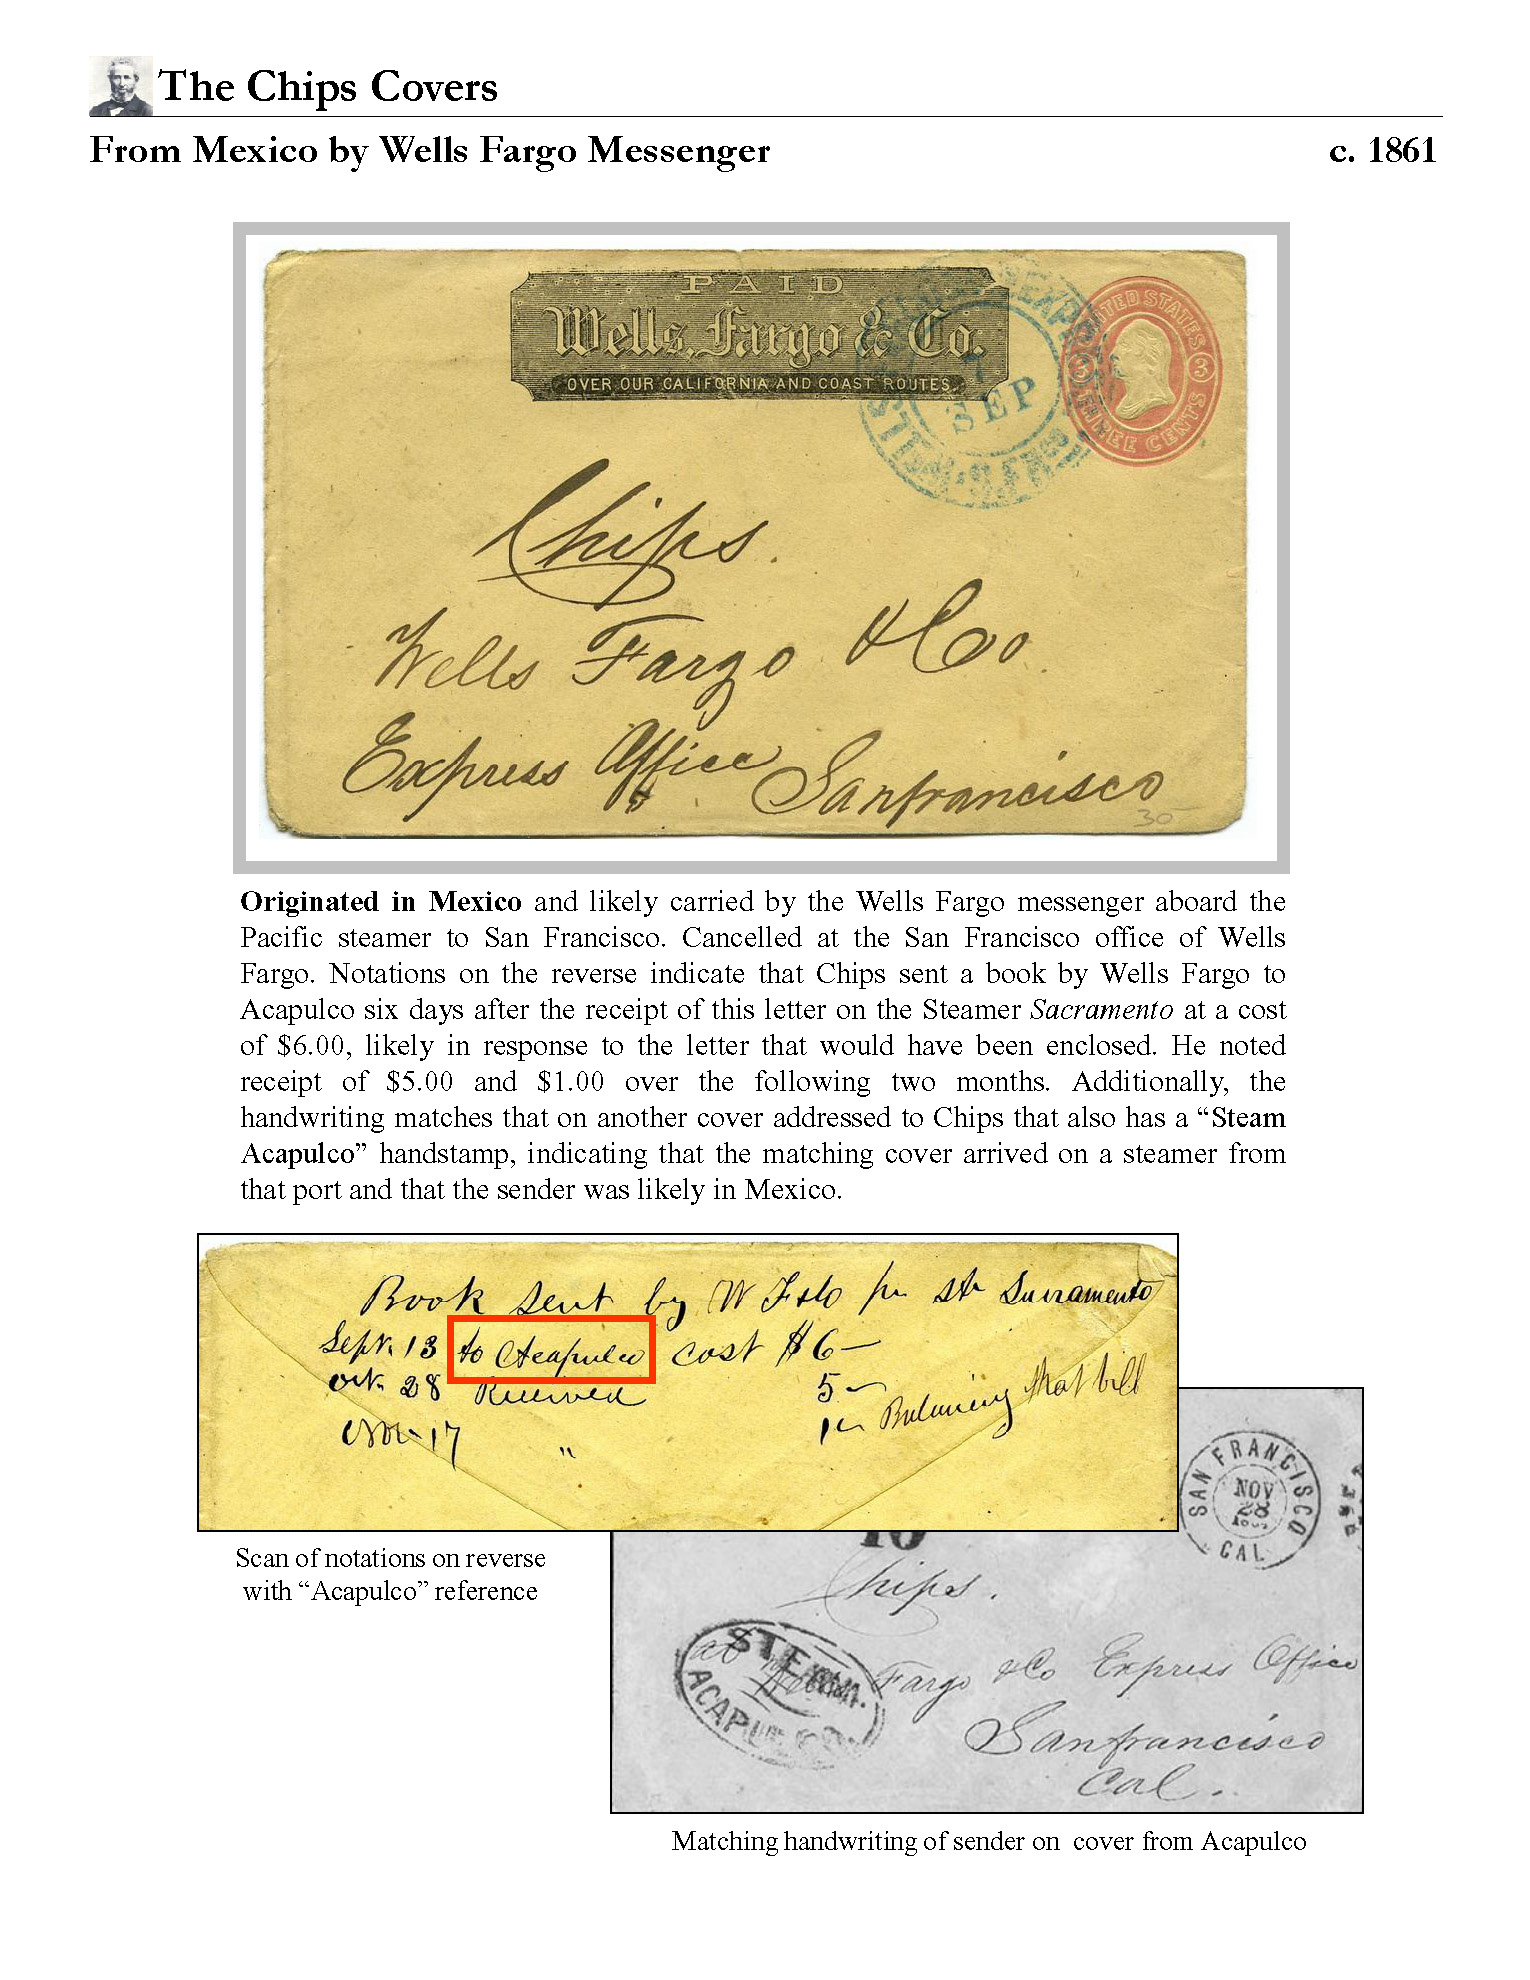 The Chips Covers
From Mexico by Wells Fargo Messenger
c. 1861
PAID
Wells, Fargo & Co.
OVER OUR CALIFORNIA AND COAST ROUTES.
7
SEP
UNITED STATES
3 3
THREE CENTS
Chips.
Wells Fargo & Co.
Express Office Sanfrancisco
30
Originated in Mexico and likely carried by the Wells Fargo messenger aboard the
Pacific steamer to San Francisco. Cancelled at the San Francisco office of Wells
Fargo. Notations on the reverse indicate that Chips sent a book by Wells Fargo to
Acapulco six days after the receipt of this letter on the Steamer Sacramento at a cost
of $6.00, likely in response to the letter that would have been enclosed. He noted
receipt of $5.00 and $1.00 over the following two months. Additionally, the
handwriting matches that on another cover addressed to Chips that also has a “Steam
Acapulco” handstamp, indicating that the matching cover arrived on a steamer from
that port and that the sender was likely in Mexico.
Book sent by W F & Co pr str Sacramento
Sept. 13 to Acapulco cost $6—
Oct. 28 Received 5—
Nov. 17 " 1— Balancing that bill
Scan of notations on reverse
with “Acapulco” reference
SAN FRANCISCO
NOV
28
CAL
10
Chips.
at Wells Fargo & Co Express Office
Sanfrancisco
Cal.
STEAM
ACAPULCO
Matching handwriting of sender on cover from Acapulco